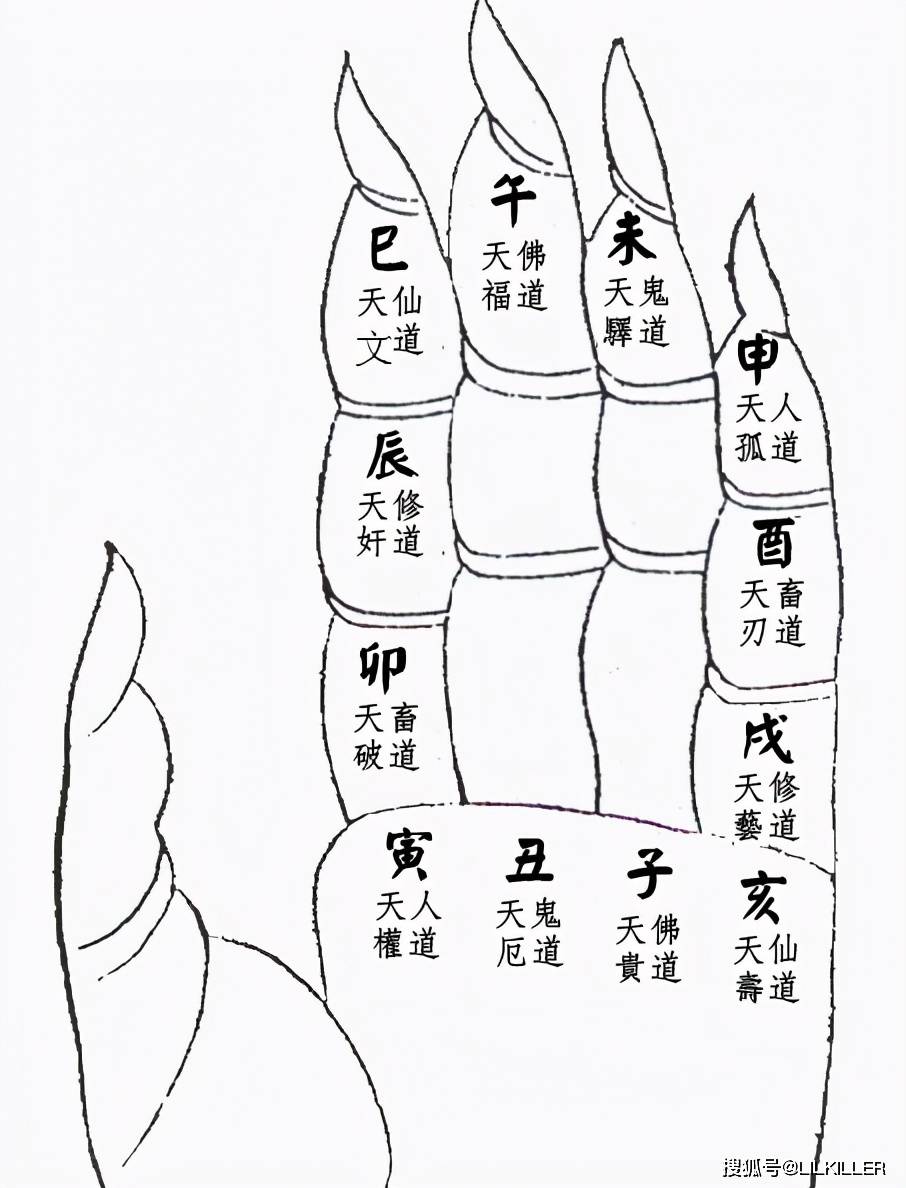 午
佛道
天福
未
鬼道
天驛
巳
仙道
天文
申
人道
天孤
辰
修道
天奸
酉
畜道
天刃
卯
畜道
天破
戌
修道
天藝
寅
人道
天權
丑
鬼道
天厄
子
佛道
天貴
亥
仙道
天壽
搜狐号@LILKILLER